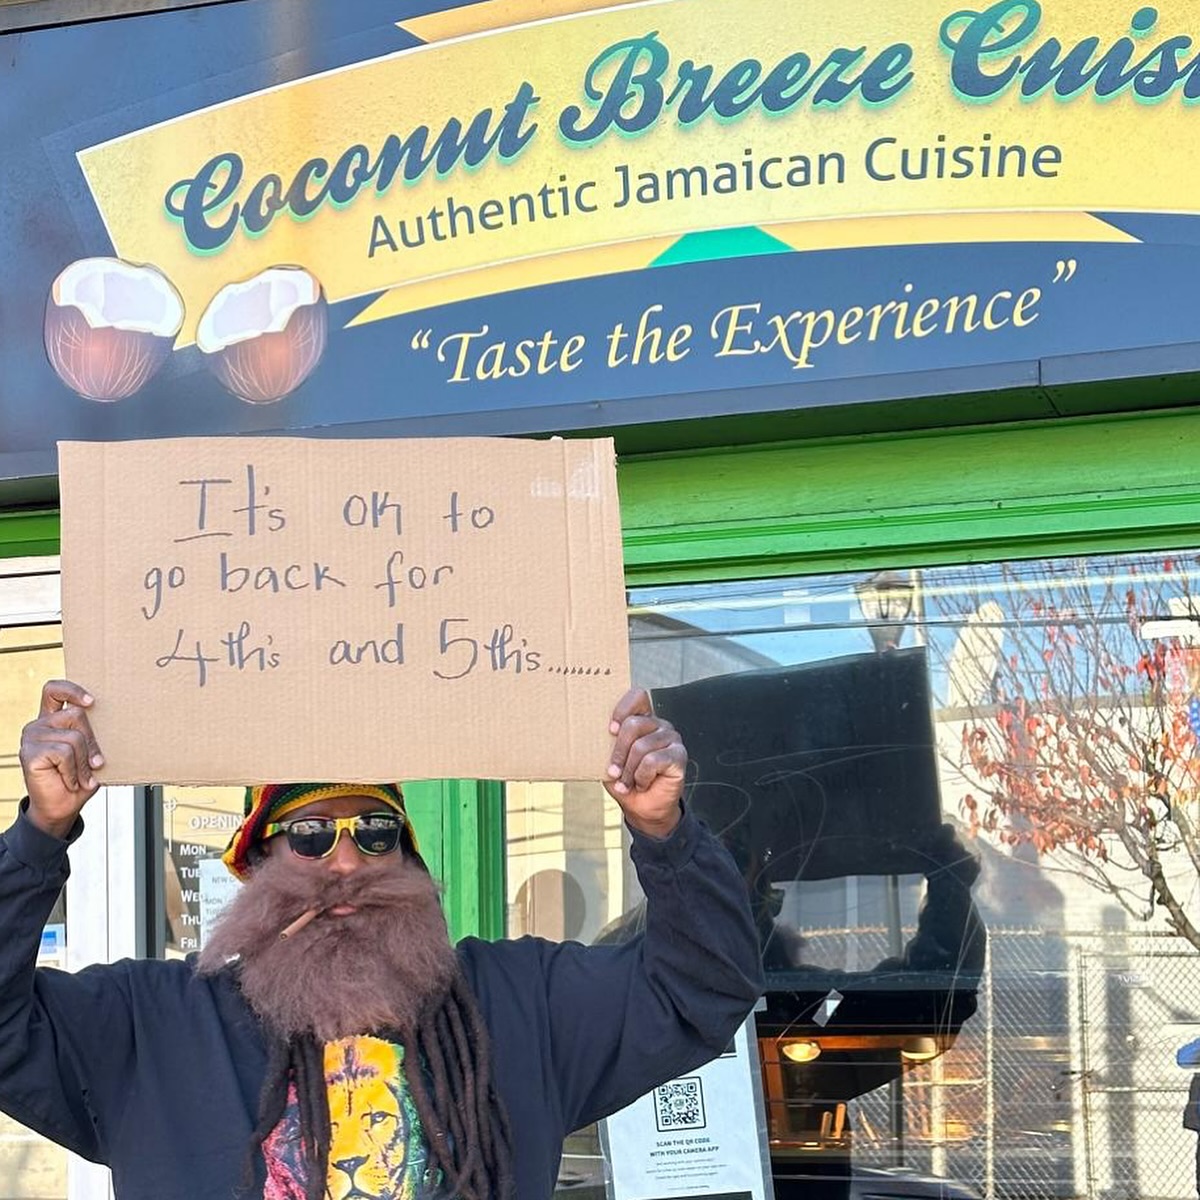 Coconut Breeze
Authentic Jamaican Cuisine
“Taste the Experience”
It's OK to
go back for
4th's and 5th's........
MON
TUE
THU
FRI
SCAN THE QR CODE
WITH YOUR CAMERA APP